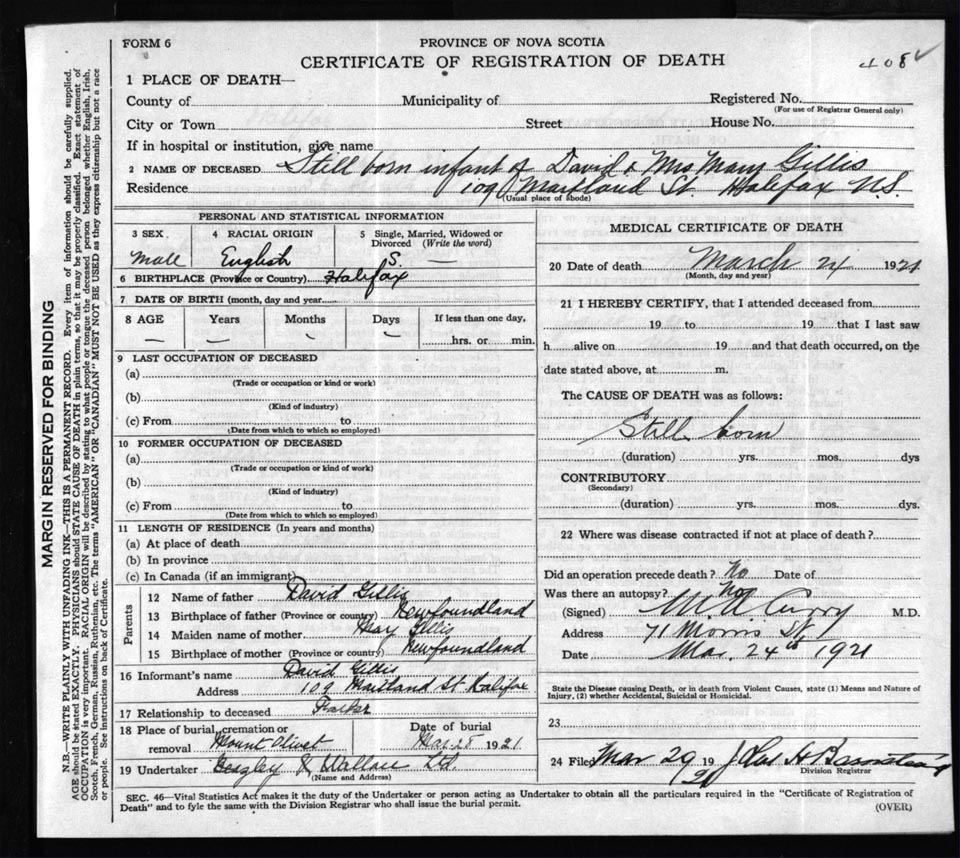 FORM 6
PROVINCE OF NOVA SCOTIA
CERTIFICATE OF REGISTRATION OF DEATH
408
1 PLACE OF DEATH—
County of Municipality of Registered No.
(For use of Registrar General only)
City or Town Street House No.
If in hospital or institution, give name
2 NAME OF DECEASED Still born infant of David & Mrs Mary Gillis
Residence 109 Maitland St. Halifax N.S.
(Usual place of abode)
PERSONAL AND STATISTICAL INFORMATION
3 SEX 4 RACIAL ORIGIN 5 Single, Married, Widowed or Divorced (Write the word)
Male English S. —
6 BIRTHPLACE (Province or Country) Halifax
7 DATE OF BIRTH (month, day and year)
8 AGE Years Months Days If less than one day,
— — — — hrs. or min.
9 LAST OCCUPATION OF DECEASED
(a)
(Trade or occupation or kind or work)
(b)
(Kind of industry)
(c) From to
(Date from which to which so employed)
10 FORMER OCCUPATION OF DECEASED
(a)
(Trade or occupation or kind of work)
(b)
(Kind of industry)
(c) From to
(Date from which to which so employed)
11 LENGTH OF RESIDENCE (In years and months)
(a) At place of death
(b) In province
(c) In Canada (if an immigrant)
Parents
12 Name of father David Gillis
13 Birthplace of father (Province or country) Newfoundland
14 Maiden name of mother May Gillis
15 Birthplace of mother (Province or country) Newfoundland
16 Informant's name David Gillis
Address 109 Maitland St Halifax
17 Relationship to deceased Father
18 Place of burial, cremation or removal Mount Olivet Date of burial Mar 25 1921
19 Undertaker Beazley & Wallace Ltd.
(Name and Address)
MEDICAL CERTIFICATE OF DEATH
20 Date of death March 24 1921
(Month, day and year)
21 I HEREBY CERTIFY, that I attended deceased from
19 to 19 that I last saw
h alive on 19 and that death occurred, on the
date stated above, at m.
The CAUSE OF DEATH was as follows:
Still born
(duration) yrs. mos. dys
CONTRIBUTORY
(Secondary)
(duration) yrs. mos. dys.
22 Where was disease contracted if not at place of death?
Did an operation precede death? No Date of
Was there an autopsy? No
(Signed) Curry M.D.
Address 71 Morris St,
Date Mar. 24th 1921
State the Disease causing Death, or in death from Violent Causes, state (1) Means and Nature of Injury, (2) whether Accidental, Suicidal or Homicidal.
23
24 Filed Mar 29 19 21
Division Registrar
SEC. 46—Vital Statistics Act makes it the duty of the Undertaker or person acting as Undertaker to obtain all the particulars required in the "Certificate of Registration of
Death" and to fyle the same with the Division Registrar who shall issue the burial permit.
(OVER)
MARGIN RESERVED FOR BINDING
N.B.—WRITE PLAINLY WITH UNFADING INK—THIS IS A PERMANENT RECORD. Every item of information should be carefully supplied.
AGE should be stated EXACTLY. PHYSICIANS should STATE CAUSE OF DEATH in plain terms, so that it may be properly classified. Exact statement of
OCCUPATION is very important. RACIAL ORIGIN will be described by stating to what people or tongue the deceased person belonged whether English, Irish,
Scotch, French, German, Russian, Ruthenian, etc. The terms "AMERICAN" OR "CANADIAN" MUST NOT BE USED as they express citizenship but not a race
or people. See instructions on back of Certificate.